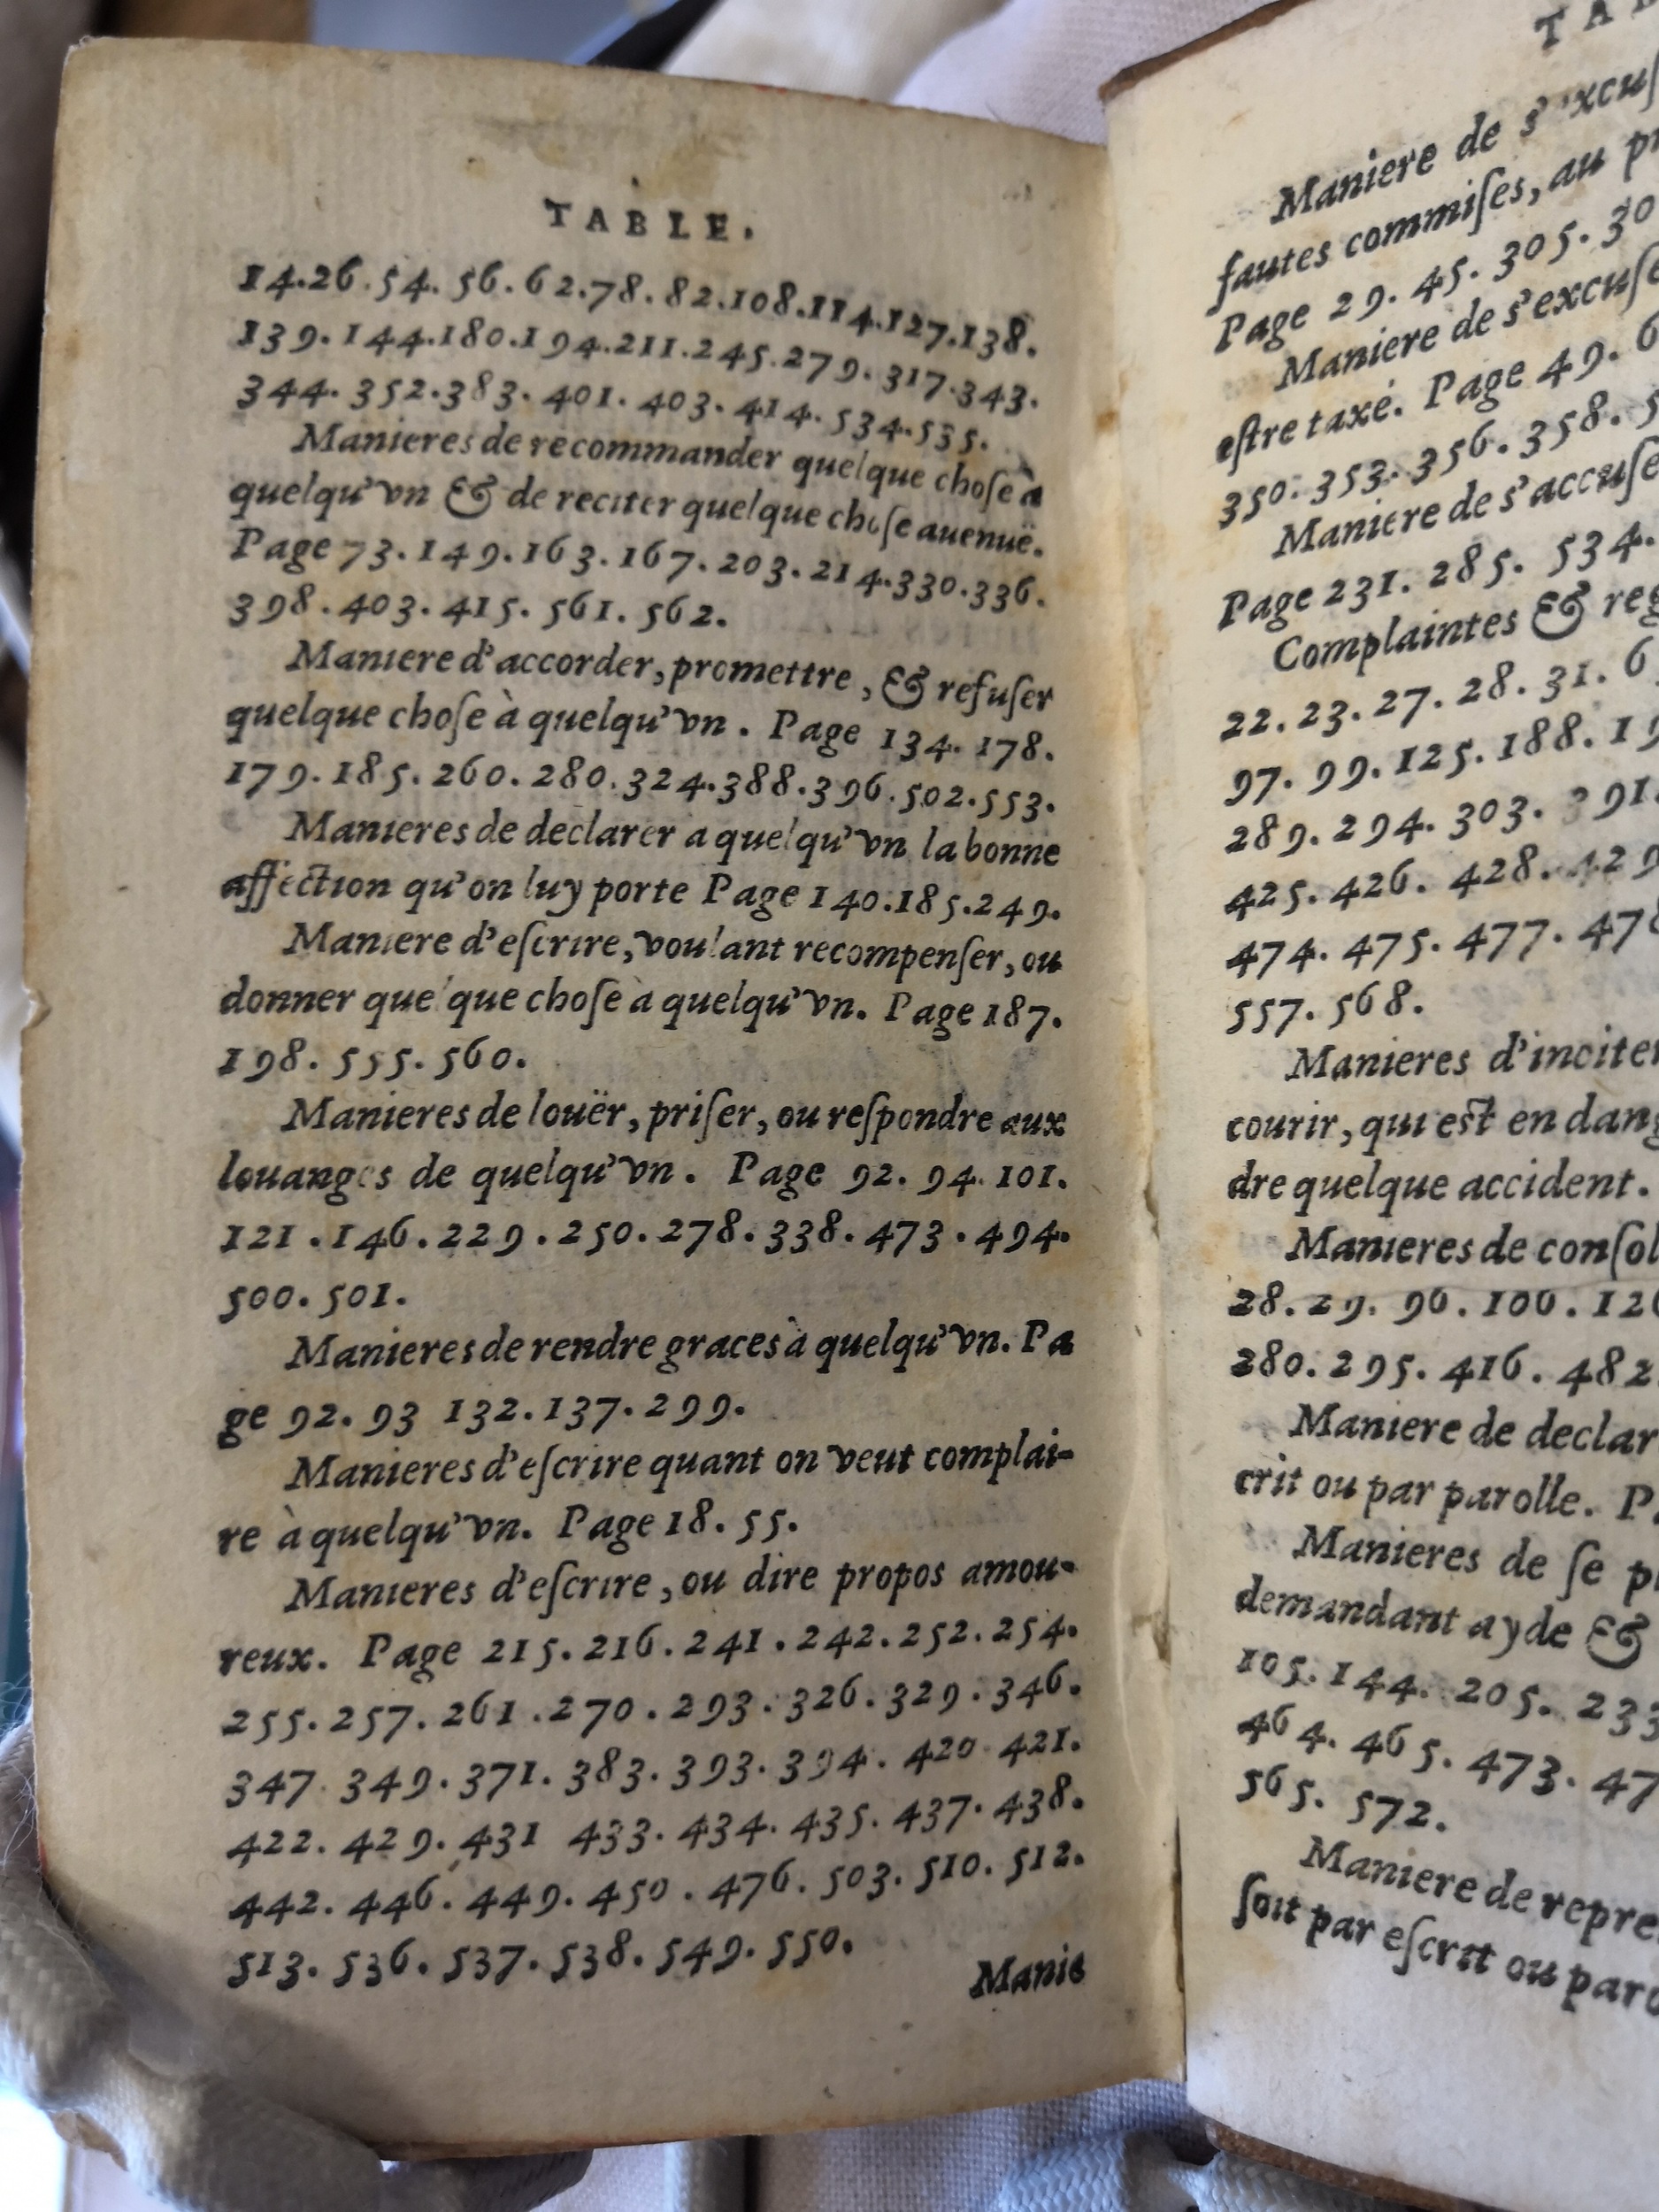 TABLE.
14.26.54.56.62.78.82.108.114.127.138.
139.144.180.194.211.245.279.317.343.
344.352.383.401.403.414.534.535.
Manieres de recommander quelque choſe à
quelqu'vn & de reciter quelque choſe auenuë.
Page 73.149.163.167.203.214.330.336.
398.403.415.561.562.
Maniere d'accorder, promettre, & refuſer
quelque choſe à quelqu'vn. Page 134.178.
179.185.260.280.324.388.396.502.553.
Manieres de declarer a quelqu'vn la bonne
affection qu'on luy porte Page 140.185.249.
Maniere d'eſcrire, voulant recompenſer, ou
donner quelque choſe à quelqu'vn. Page 187.
198.555.560.
Manieres de louër, priſer, ou reſpondre aux
louanges de quelqu'vn. Page 92.94.101.
121.146.229.250.278.338.473.494.
500.501.
Manieres de rendre graces à quelqu'vn. Pa
ge 92.93 132.137.299.
Manieres d'eſcrire quant on veut complai-
re à quelqu'vn. Page 18.55.
Manieres d'eſcrire, ou dire propos amou-
reux. Page 215.216.241.242.252.254.
255.257.261.270.293.326.329.346.
347.349.371.383.393.394.420.421.
422.429.431 433.434.435.437.438.
442.446.449.450.476.503.510.512.
513.536.537.538.549.550.
Manie
Maniere de
fautes commiſes, au
Page 29.45.305.
Maniere de
eſtre taxé. Page 49.
350.353.356.358.
Maniere de
Page 231.285.534.
Complaintes &
22.23.27.28.31.
97.99.125.188.
289.294.303.391.
425.426.428.429
474.475.477.
557.568.
Manieres
courir, qui est en
dre quelque accident.
Manieres de
28.29.96.106.
280.295.416.482
Maniere de
crit ou par parolle.
Manieres de ſe
demandant ayde &
105.144.205.233
464.465.473.
565.572.
Maniere de
ſoit par eſcrit ou